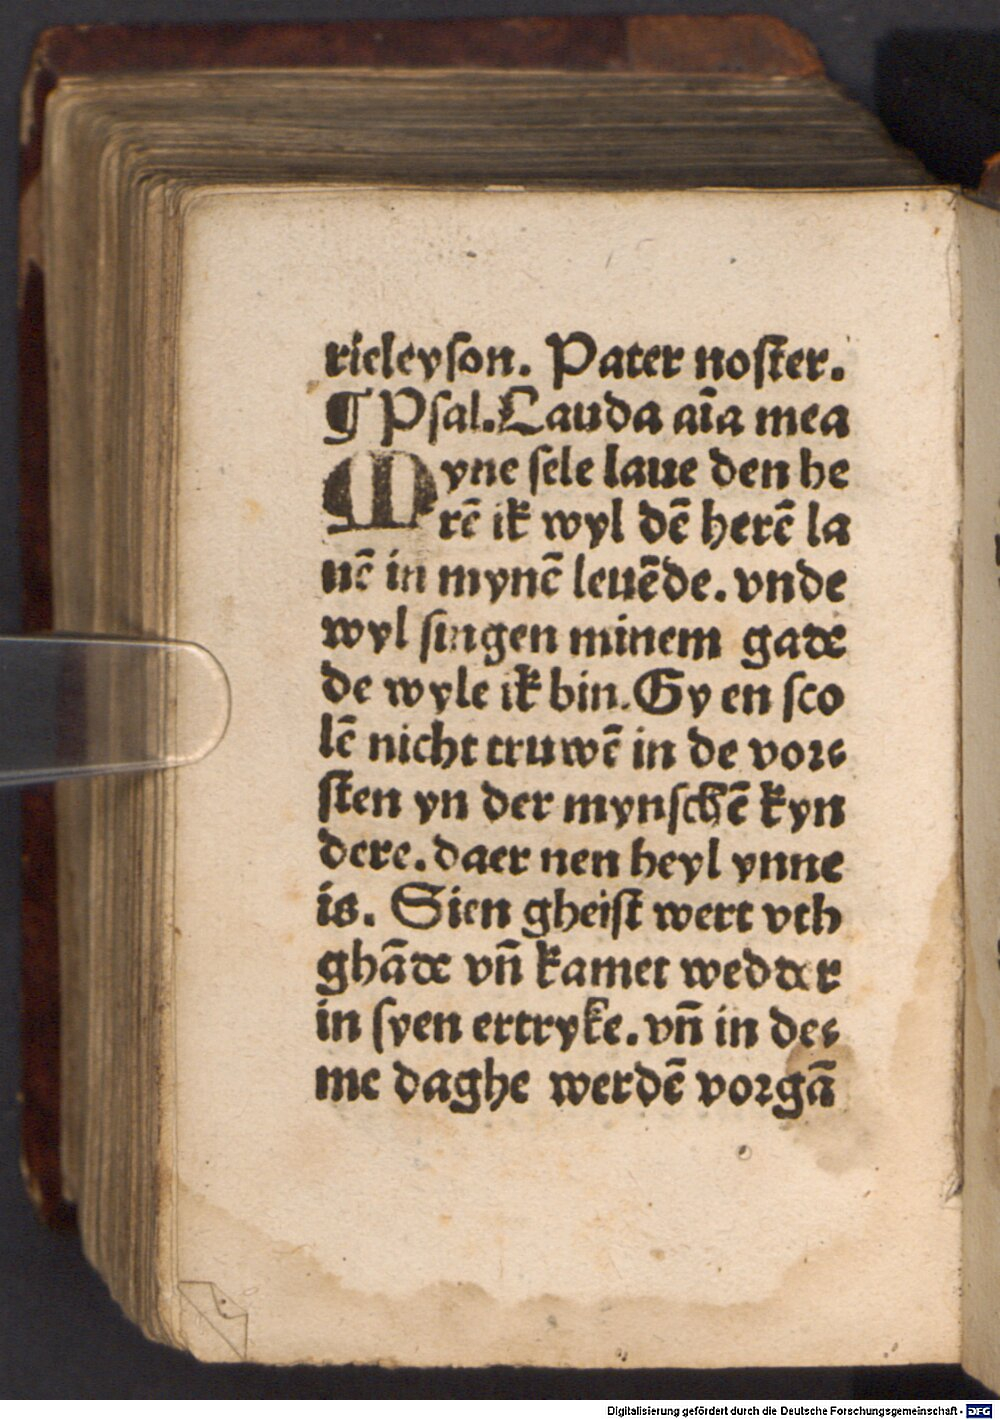 rieleyſon. Pater noſter.
¶ Pſal. Lauda aīa mea
Myne ſele laue den he
rē ik wyl dē herē la
uē in mynē leuēde. vnde
wyl ſingen minem gade
de wyle ik bin. Gy en ſco
lē nicht truwē in de vor⸗
ſten yn der mynſchē kyn
dere. daer nen heyl ynne
is. Sien gheiſt wert vth
ghāde vn̄ kamet wedder
in ſyen ertryke. vn̄ in deſ⸗
me daghe werdē vorgā
Digitalisierung gefördert durch die Deutsche Forschungsgemeinschaft - DFG